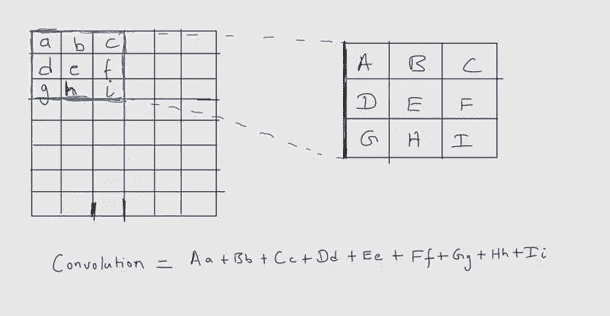 a b c
d e f
g h i
A B C
D E F
G H I
Convolution = Aa + Bb + Cc + Dd + Ee + Ff + Gg + Hh + Ii